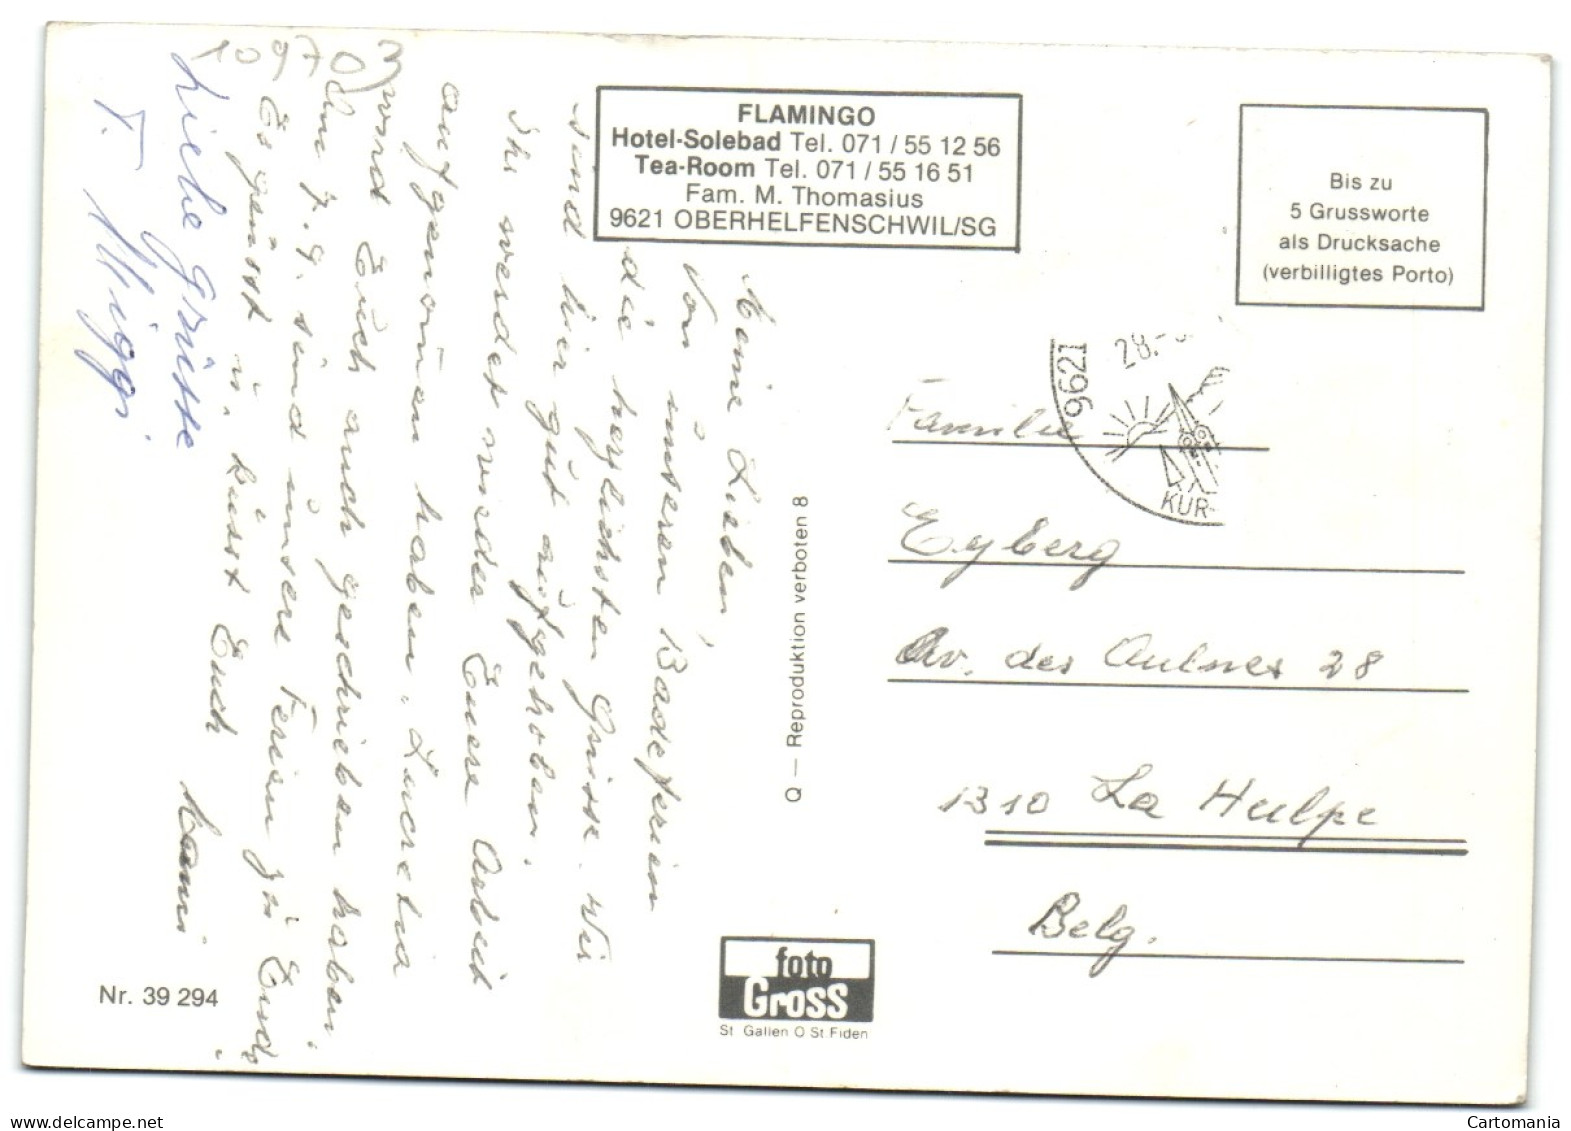 FLAMINGO
Hotel-Solebad Tel. 071 / 55 12 56
Tea-Room Tel. 071 / 55 16 51
Fam. M. Thomasius
9621 OBERHELFENSCHWIL/SG
Bis zu
5 Grussworte
als Drucksache
(verbilligtes Porto)
9621
28.
KUR-
Meine Lieben,
Von unseren Badeferien
die herzlichsten Grüsse. Wir
sind hier gut aufgehoben.
Ihr werdet wieder Euere Arbeit
aufgenomen haben. Lucretia
wird Euch auch geschrieben haben.
Am 7. 9. sind unsere Ferien zu Ende
Es grüsst u. küsst Euch
Liebe Grüsse
T. Miggi
109703
Q — Reproduktion verboten 8
Familie
Eyberg
Av. des Aulnes 28
1310 La Hulpe
Belg.
foto
Gross
St Gallen O St. Fiden
Nr. 39 294
https://www.delcampe.net
Cartomania